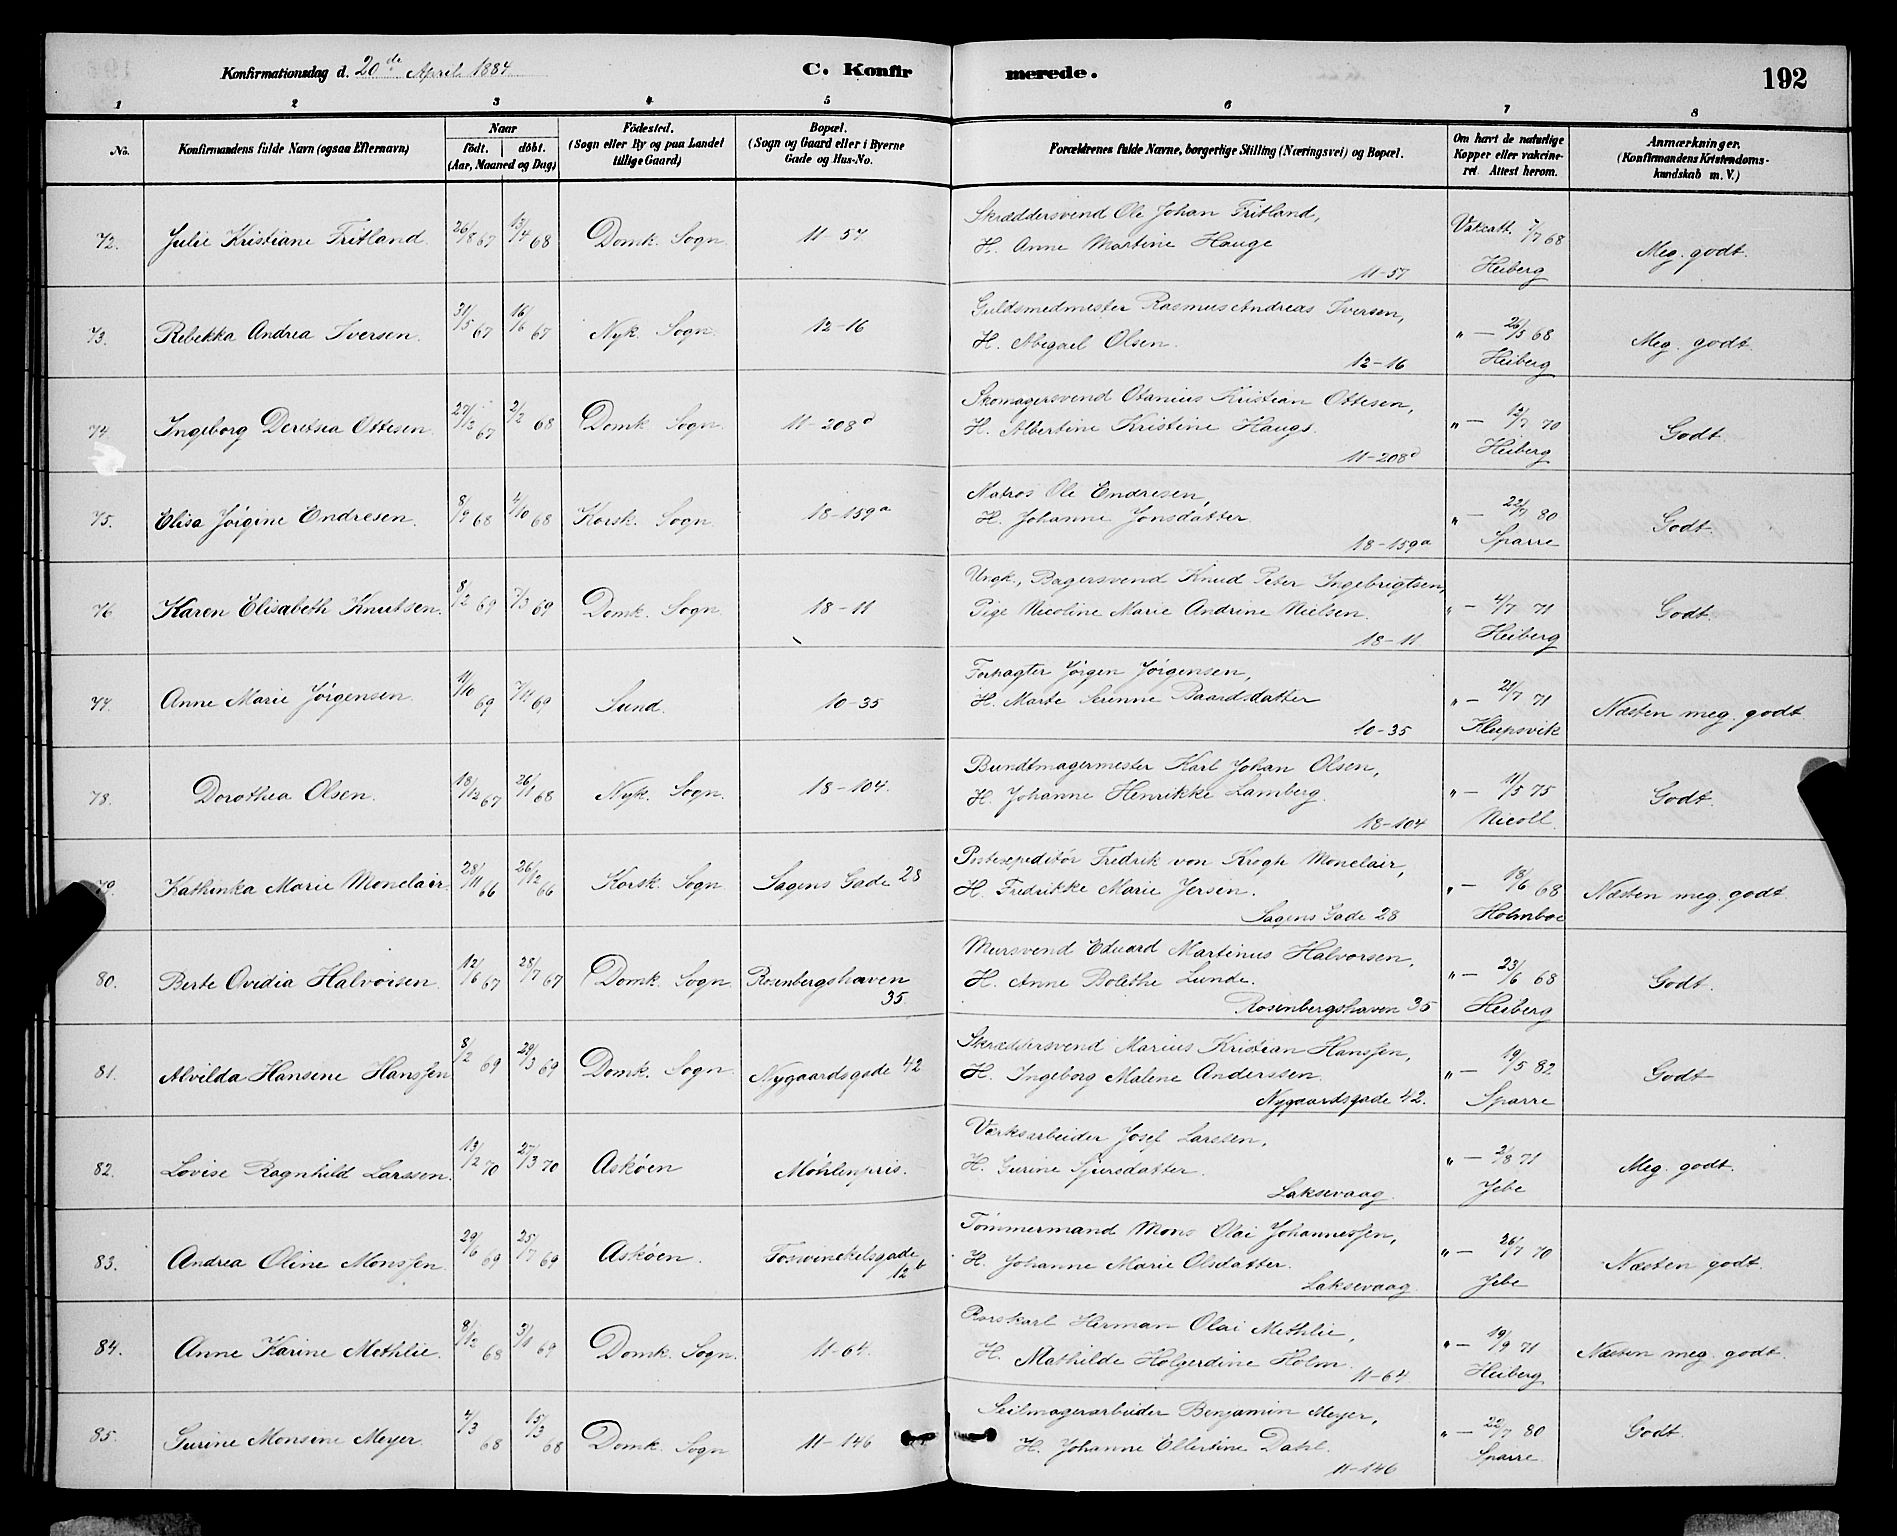 Konfirmationsdag d. 20de April 1884
C. Konfirmerede.
192
1 2 3 4 5 6 7 8
No.
Konfirmandens fulde Navn (ogsaa Efternavn)
Naar
födt. döbt.
(Aar, Maaned og Dag)
Födested.
(Sogn eller By og paa Landet
tillige Gaard)
Bopæl.
(Sogn og Gaard eller i Byerne
Gade og Hus-No.
Forældrenes fulde Navne, borgerlige Stilling (Næringsvei) og Bopæl.
Om havt de naturlige
Kopper eller vakcine-
ret. Attest herom.
Anmærkninger.
(Konfirmandens Kristendoms-
kundskab m. V.)
72. Julie Kristiane Fritland. 26/8 67 13/4 68 Domk. Sogn. 11-57 Skræddersvend Ole Johan Fritland, Vakcatt. 7/7 68 Meg. godt.
H. Anne Martine Hauge Heiberg
11-57
73. Rebekka Andrea Iversen. 31/5 67 16/6 67 Nyk. Sogn. 12-16 Guldsmedmester Rasmus Andreas Iversen, " — 26/5 68 Meg. godt.
H. Abigael Olsen. Heiberg
12-16
74. Ingeborg Deretsea Ottesen. 27/12 67 2/2 68 Domk. Sogn. 11-208d Skomagersvend Otanius Kristian Ottesen, " — 12/7 70 Godt.
H. Albertine Kristine Haugs. Heiberg
11-208d
75. Elisa Jörgine Endresen. 8/9 68 4/10 68 Korsk. Sogn. 18-159a Matros Ole Endresen, " — 22/7 80 Godt.
H. Johanne Jonsdatter. Sparre
18-159a
76. Karen Elisabeth Knutsen. 8/2 69 7/3 69 Domk. Sogn. 18-11 Ungk., Bagersvend Knud Peter Ingebrigtsen, " — 4/7 71 Godt.
Pige Nicoline Marie Andrine Nielsen. Heiberg
18-11
77. Anne Marie Jörgensen. 11/10 69 7/11 69 Sund. 10-35 Forhagter Jörgen Jörgensen, " — 21/7 71 Næsten meg. godt
H. Marte Serenne Baardsdatter
10-35
78. Dorothea Olsen. 18/12 67 26/1 68 Nyk. Sogn. 18-104. Bundtmagermester Karl Johan Olsen, " — 11/5 75 Godt.
H. Johanne Henrikke Lamberg. Nicoll.
18-104
79. Kathinka Marie Monclair. 28/11 66 26/12 66 Korsk. Sogn. Sagens Gade 28 Postexpeditör Fredrik von Krogh Monclair, " — 18/6 68 Næsten meg. godt.
H. Fredrikke Marie Jersen. Holmboe
Sagens Gade 28
80. Berte Ovidia Halvorsen. 12/6 67 28/7 67 Domk. Sogn. Rosenbergshaven 35. Mursvend Eduard Martinus Halvorsen, " — 23/6 68 Godt.
H. Anne Bolethe Lunde. Heiberg
Rosenbergshaven 35
81. Alvilda Hansine Hansſen 8/2 69 29/3 69 Domk. Sogn. Nygaardsgade 42 Skræddersvend Marius Kristian Hansſen, " — 19/5 82 Godt
H. Ingeborg Malene Anderssen. Sparre
Nygaardsgade 42.
82. Lovise Ragnhild Larssen. 13/2 70 27/3 70 Asköen Möhlenpris. Værksarbeider Josef Larssen, " — 2/8 71 Meg. godt.
H. Gurine Sjursdatter. Jebe
Laksevaag.
83. Andrea Oline Monsſen. 29/6 69 25/7 69 Asköen. Fosvinckelsgade 12b Tömmermand Mons Olai Johannesſen, " — 26/7 70 Næsten godt.
H. Johanne Marie Olsdatter. Jebe
Laksevaag.
84. Anne Karine Methlie. 8/12 68 3/1 69 Domk. Sogn. 11-64. Rorskarl Herman Olai Methlie, " — 19/9 71 Næsten meg. godt.
H. Mathilde Holgerdine Holm. Heiberg
11-64
85. Gurine Monsine Meyer. 4/3 68 15/3 68 Domk. Sogn 11-146 Seilmagerarbeider Benjamin Meyer, " — 22/7 80 Godt.
H. Johanne Ellertine Dahl. Sparre.
11-146